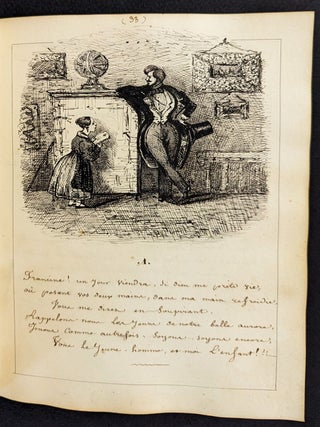 (33)
A.
Francine! un jour viendra, si dieu me prête vie,
où posant vos deux mains, dans ma main refroidie,
Vous me direz en soupirant,
Rappelons nous les jeux de notre belle aurore,
Jouons comme autrefois. Soyons.. soyons encore,
Vous le jeune homme, et moi l'enfant!!